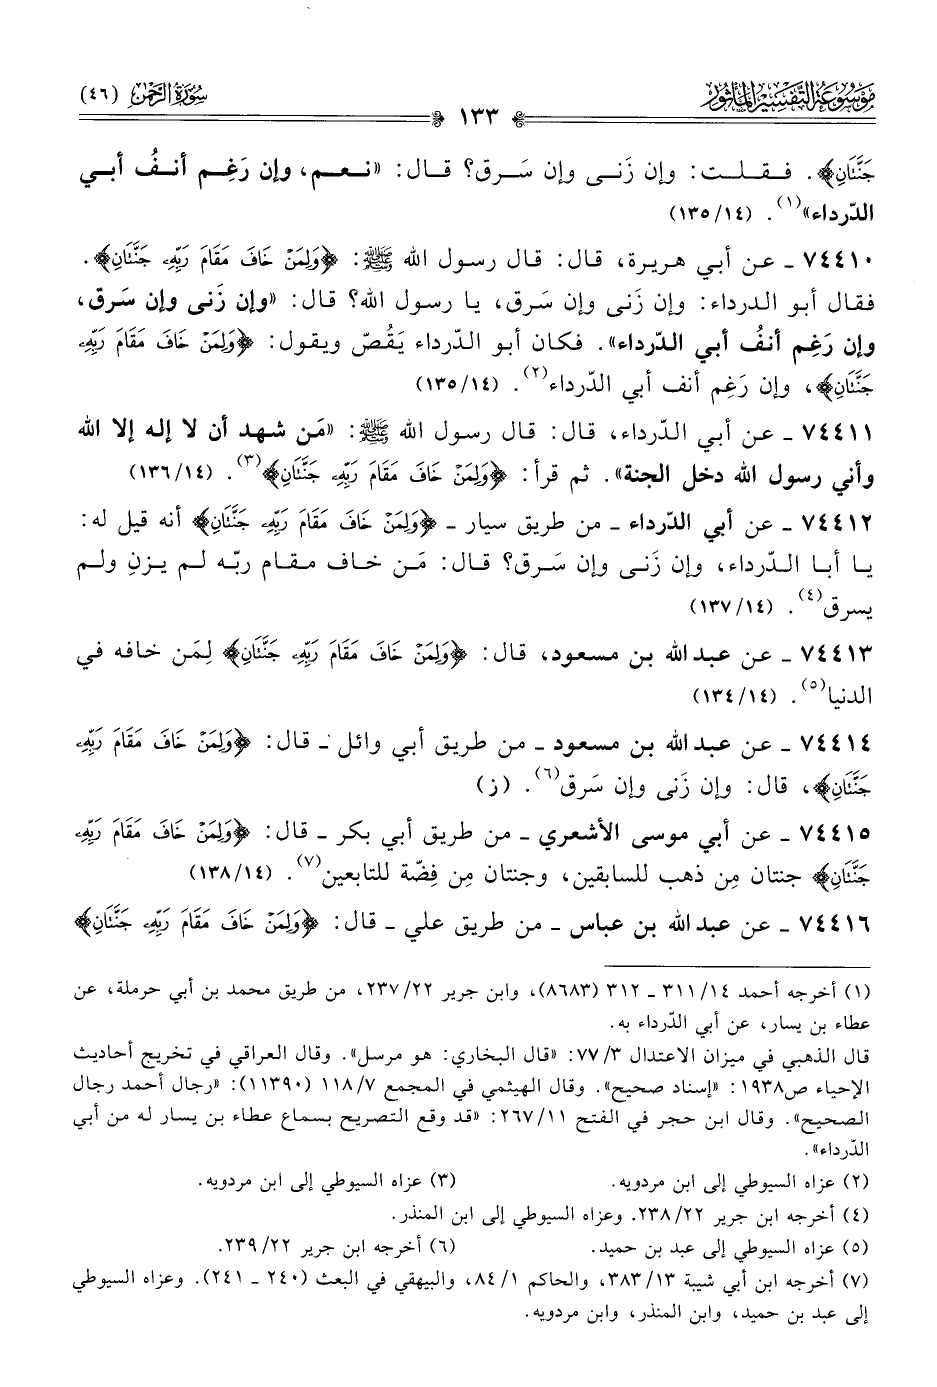 مَوْسُوعَة التَّفْسِير المَأْثُور
سُورَةُ الرَّحْمٰن (٤٦)
١٣٣
جَنَّتَانِ﴾. فـقـلـت: وإن زَنـى وإن سَـرق؟ قـال: «نـعـم، وإن رَغِـم أنـفُ أبـي
الدّرداء»(١). (١٤/ ١٣٥)
٧٤٤١٠ ـ عن أبي هريرة، قال: قال رسول الله ﷺ: ﴿وَلِمَنْ خَافَ مَقَامَ رَبِّهِۦ جَنَّتَانِ﴾.
فقال أبو الدرداء: وإن زَنى وإن سَرق، يا رسول الله؟ قال: «وإن زَنى وإن سَرق،
وإن رَغِم أنفُ أبي الدّرداء». فكان أبو الدّرداء يَقُصّ ويقول: ﴿وَلِمَنْ خَافَ مَقَامَ رَبِّهِۦ
جَنَّتَانِ﴾، وإن رَغِم أنف أبي الدّرداء(٢). (١٤/ ١٣٥)
٧٤٤١١ ـ عن أبي الدّرداء، قال: قال رسول الله ﷺ: «مَن شهد أن لا إله إلا الله
وأني رسول الله دخل الجنة». ثم قرأ: ﴿وَلِمَنْ خَافَ مَقَامَ رَبِّهِۦ جَنَّتَانِ﴾(٣). (١٤/ ١٣٦)
٧٤٤١٢ ـ عن أبي الدّرداء ـ من طريق سيار ـ ﴿وَلِمَنْ خَافَ مَقَامَ رَبِّهِۦ جَنَّتَانِ﴾ أنه قيل له:
يا أبا الدّرداء، وإن زَنى وإن سَرق؟ قال: مَن خاف مقام ربّه لم يزنِ ولم
يسرق(٤). (١٤/ ١٣٧)
٧٤٤١٣ ـ عن عبد الله بن مسعود، قال: ﴿وَلِمَنْ خَافَ مَقَامَ رَبِّهِۦ جَنَّتَانِ﴾ لِمَن خافه في
الدنيا(٥). (١٤/ ١٣٤)
٧٤٤١٤ ـ عن عبد الله بن مسعود ـ من طريق أبي وائل ـ قال: ﴿وَلِمَنْ خَافَ مَقَامَ رَبِّهِۦ
جَنَّتَانِ﴾، قال: وإن زَنى وإن سَرق(٦). (ز)
٧٤٤١٥ ـ عن أبي موسى الأشعري ـ من طريق أبي بكر ـ قال: ﴿وَلِمَنْ خَافَ مَقَامَ رَبِّهِۦ
جَنَّتَانِ﴾ جنتان مِن ذهب للسابقين، وجنتان مِن فِضّة للتابعين(٧). (١٤/ ١٣٨)
٧٤٤١٦ ـ عن عبد الله بن عباس ـ من طريق علي ـ قال: ﴿وَلِمَنْ خَافَ مَقَامَ رَبِّهِۦ جَنَّتَانِ﴾
(١) أخرجه أحمد ١٤/ ٣١١ ـ ٣١٢ (٨٦٨٣)، وابن جرير ٢٢/ ٢٣٧، من طريق محمد بن أبي حرملة، عن
عطاء بن يسار، عن أبي الدّرداء به.
قال الذهبي في ميزان الاعتدال ٣/ ٧٧: «قال البخاري: هو مرسل». وقال العراقي في تخريج أحاديث
الإحياء ص١٩٣٨: «إسناد صحيح». وقال الهيثمي في المجمع ٧/ ١١٨ (١١٣٩٠): «رجال أحمد رجال
الصحيح». وقال ابن حجر في الفتح ١١/ ٢٦٧: «قد وقع التصريح بسماع عطاء بن يسار له من أبي
الدّرداء».
(٢) عزاه السيوطي إلى ابن مردويه. (٣) عزاه السيوطي إلى ابن مردويه.
(٤) أخرجه ابن جرير ٢٢/ ٢٣٨. وعزاه السيوطي إلى ابن المنذر.
(٥) عزاه السيوطي إلى عبد بن حميد. (٦) أخرجه ابن جرير ٢٢/ ٢٣٩.
(٧) أخرجه ابن أبي شيبة ١٣/ ٣٨٣، والحاكم ١/ ٨٤، والبيهقي في البعث (٢٤٠ ـ ٢٤١). وعزاه السيوطي
إلى عبد بن حميد، وابن المنذر، وابن مردويه.